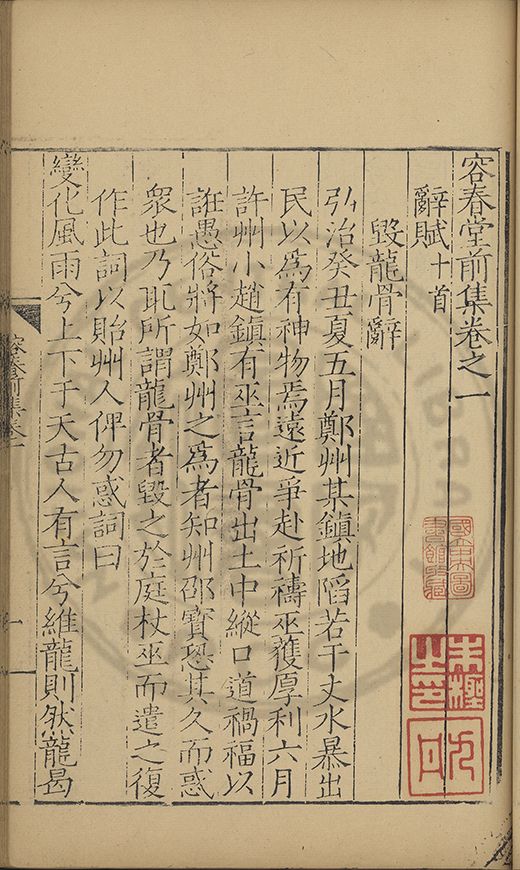 容春堂前集卷之一
辭賦十首
毀龍骨辭
弘治癸丑夏五月鄭州某鎮地陷若干丈水暴出
民以爲有神物焉遠近爭赴祈禱巫獲厚利六月
許州小趙鎮有巫言龍骨出土中縱口道禍福以
誑愚俗將如鄭州之爲者知州邵寳恐其久而惑
衆也乃取所謂龍骨者毀之於庭杖巫而遣之復
作此詞以貽州人俾勿惑詞曰
變化風雨兮上下于天古人有言兮維龍則然龍曷
容春前集卷一
一
國立中央圖書館收藏